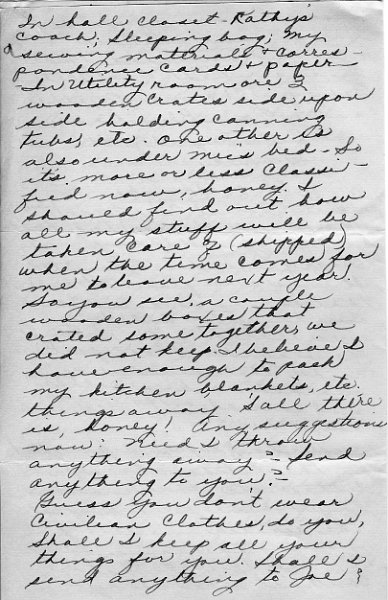 In hall closet - Kathy's
coach, Sleeping bag, my
sewing materials & corres-
pondence cards & paper
In Utility room are 3
wooden crates side upon
side holding canning
tubs, etc. One other is
also under bed - So
its more or less classi-
fied now, honey. I
should find out how
all my stuff will be
taken care of (shipped)
when the time comes for
me to leave next year.
So you see, a couple
wooden boxes that
crated some together, we
did not keep. I believe I
have enough to pack
my kitchen blankets, etc.
things away. S'all there
is, honey! Any suggestions
now? Need I throw
anything away? Send
anything to you?
Guess you don't wear
Civilian Clothes, do you,
Shall I keep all your
things for you. Shall I
send anything to Joe?